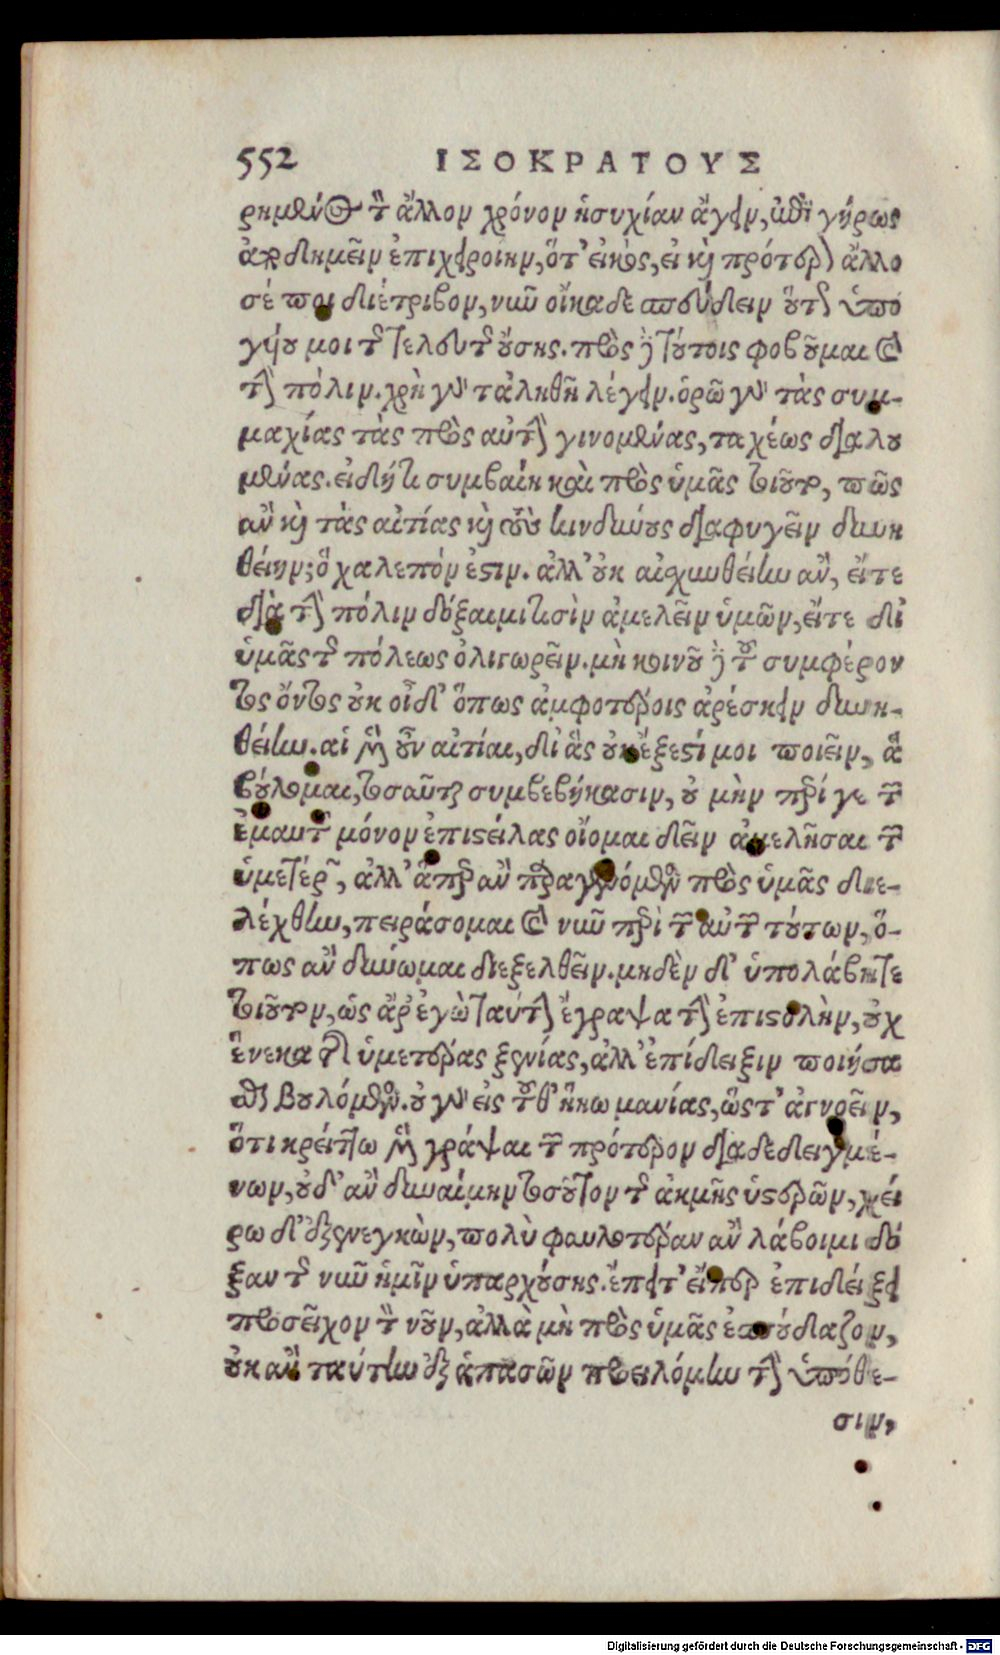 552 ΙΣΟΚΡΑΤΟΥΣ
ρημένος τὸν ἄλλον χρόνον ἡσυχίαν ἄγειν, ἐπὶ γήρως
ἀποδημεῖν ἐπιχειροίην, ὅτ' εἰκὸς, εἰ καὶ πρότερον ἄλλο
σέ ποι διέτριβον, νῦν οἴκαδε σπεύδειν οὕτως ὑπο
γύου μοι τῆς τελευτῆς οὔσης. πρὸς δὲ τούτοις φοβοῦμαι καὶ
τὴν πόλιν. χρὴ γὰρ τἀληθῆ λέγειν. ὁρῶ γὰρ τὰς συμ-
μαχίας τὰς πρὸς αὐτὴν γινομένας, ταχέως διαλυ
μένας. εἰ δή τι συμβαίη καὶ πρὸς ὑμᾶς τοιοῦτον, πῶς
ἂν καὶ τὰς αἰτίας καὶ τοὺς κινδύνους διαφυγεῖν δυνη
θείην; ὃ χαλεπόν ἐστιν. ἀλλ' οὐκ αἰσχυνθείην ἂν, εἴτε
διὰ τὴν πόλιν δόξαιμι τισὶν ἀμελεῖν ὑμῶν, εἴτε δι'
ὑμᾶς τῆς πόλεως ὀλιγωρεῖν. μὴ κοινοῦ δὲ τοῦ συμφέρον
τος ὄντος οὐκ οἶδ' ὅπως ἀμφοτέροις ἀρέσκειν δυνη-
θείην. αἱ μὲν οὖν αἰτίαι, δι' ἃς οὐκ ἔξεστί μοι ποιεῖν, ἃ
βούλομαι, τοσαῦται συμβεβήκασιν, οὐ μὴν περί γε τῶν
ἐμαυτοῦ μόνον ἐπιστείλας οἴομαι δεῖν ἀμελῆσαι τῶν
ὑμετέρων, ἀλλ' ἅπερ ἂν παραγενόμενος πρὸς ὑμᾶς διε-
λέχθην, πειράσομαι καὶ νῦν περὶ τῶν αὐτῶν τούτων, ὅ-
πως ἂν δύνωμαι διεξελθεῖν. μηδὲν δ' ὑπολάβητε
τοιοῦτον, ὡς ἄρ' ἐγὼ ταύτην ἔγραψα τὴν ἐπιστολὴν, οὐχ
ἕνεκα τῆς ὑμετέρας ξενίας, ἀλλ' ἐπίδειξιν ποιήσα
σθαι βουλόμενος. οὐ γὰρ εἰς τοῦθ' ἥκω μανίας, ὥστ' ἀγνοεῖν,
ὅτι κρείττω μὲν γράψαι τῶν πρότερον διαδεδειγμέ-
νων, οὐδ' ἂν δυναίμην τοσοῦτον τῆς ἀκμῆς ὑστερῶν, χεί
ρω δ' ἐξενεγκὼν, πολὺ φαυλοτέραν ἂν λάβοιμι δό
ξαν τῆς νῦν ἡμῖν ὑπαρχούσης. ἔπειτ' εἴπερ ἐπιδείξει
προσεῖχον τὸν νοῦν, ἀλλὰ μὴ πρὸς ὑμᾶς ἐσπούδαζον,
οὐκ ἂν ταύτην ἐξ ἁπασῶν προειλόμην τὴν ὑπόθε-
σιν,
Digitalisierung gefördert durch die Deutsche Forschungsgemeinschaft - DFG